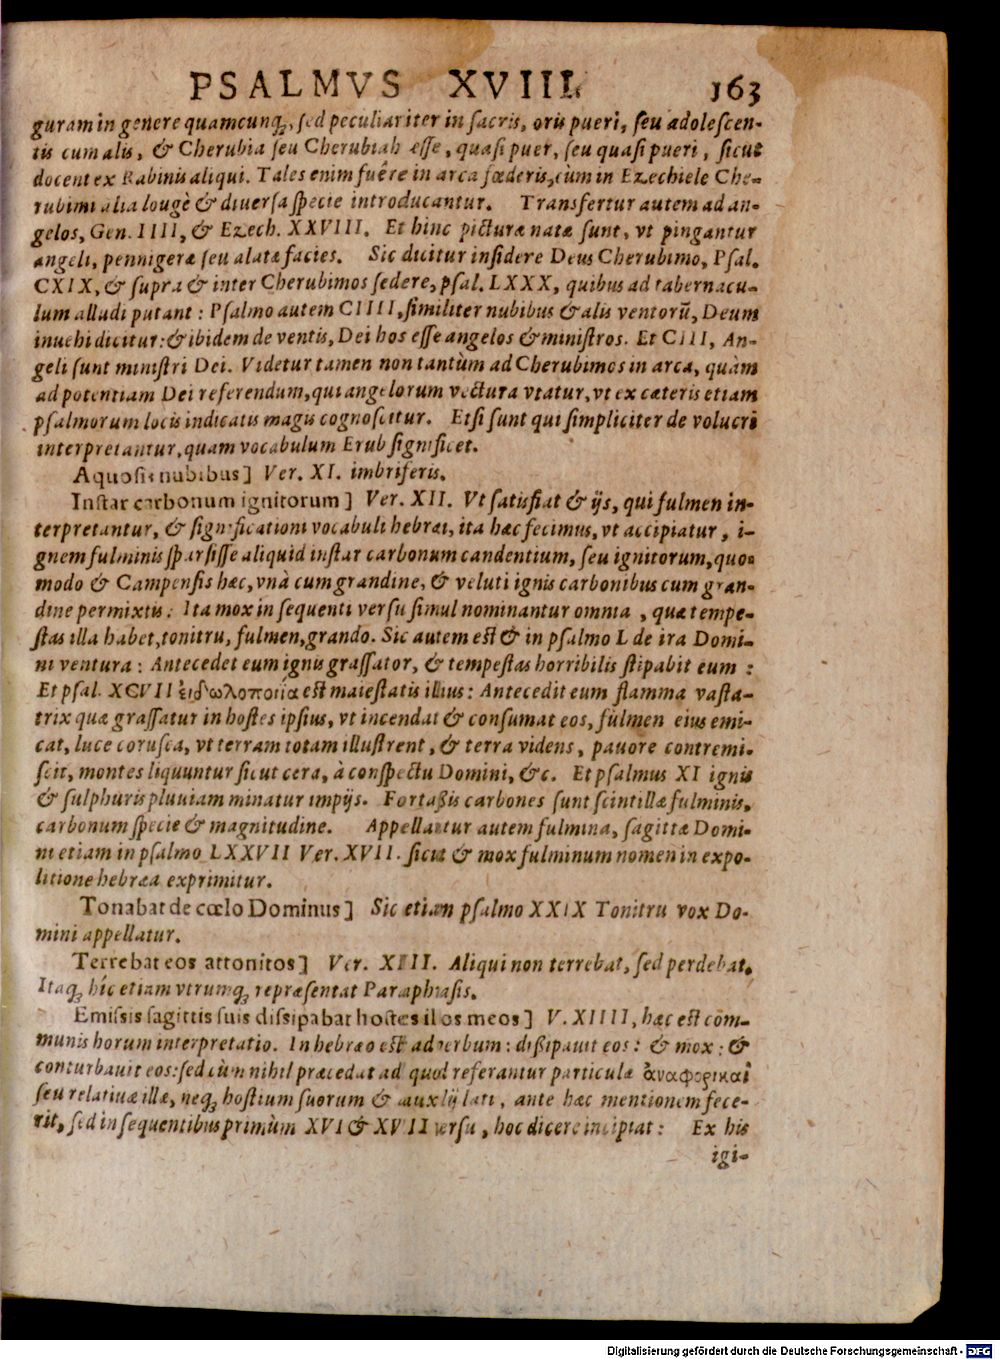 PSALMVS XVIII. 163
guram in genere quamcunq́;, sed peculiariter in sacris, oris pueri, seu adolescen-
tis cum alis, & Cherubia seu Cherubiah esse, quasi puer, seu quasi pueri, sicut
docent ex Rabinis aliqui. Tales enim fuêre in arca fœderis, cùm in Ezechiele Che-
rubimi alia lougè & diuersa specie introducantur. Transfertur autem ad an-
gelos, Gen. IIII, & Ezech. XXVIII. Et hinc picturæ natæ sunt, vt pingantur
angeli, pennigeræ seu alatæ facies. Sic dicitur insidere Deus Cherubimo, Psal.
CXIX, & supra & inter Cherubimos sedere, psal. LXXX, quibus ad tabernacu-
lum alludi putant: Psalmo autem CIIII, similiter nubibus & alis ventorũ, Deum
inuehi dicitur: & ibidem de ventis, Dei hos esse angelos & ministros. Et CIII, An-
geli sunt ministri Dei. Videtur tamen non tantùm ad Cherubimos in arca, quàm
ad potentiam Dei referendum, qui angelorum vectura vtatur, vt ex cæteris etiam
psalmorum locis indicatis magis cognoscitur. Etsi sunt qui simpliciter de volucri
interpretantur, quam vocabulum Erub significet.
Aquosis nubibus] Ver. XI. imbriferis.
Instar carbonum ignitorum] Ver. XII. Vt satisfiat & ijs, qui fulmen in-
terpretantur, & significationi vocabuli hebræi, ita hæc fecimus, vt accipiatur, i-
gnem fulminis sparsisse aliquid instar carbonum candentium, seu ignitorum, quo-
modo & Campensis hæc, vnà cum grandine, & veluti ignis carbonibus cum gran-
dine permixtis: Ita mox in sequenti versu simul nominantur omnia, quæ tempe-
stas illa habet, tonitru, fulmen, grando. Sic autem est & in psalmo L de ira Domi-
ni ventura: Antecedet eum ignis grassator, & tempestas horribilis stipabit eum:
Et psal. XCVII ἐιδωλοποιία est maiestatis illius: Antecedit eum flamma vasta-
trix quæ grassatur in hostes ipsius, vt incendat & consumat eos, fulmen eius emi-
cat, luce corusca, vt terram totam illustrent, & terra videns, pauore contremi-
scit, montes liquuntur sicut cera, à conspectu Domini, &c. Et psalmus XI ignis
& sulphuris pluuiam minatur impijs. Fortaßis carbones sunt scintillæ fulminis,
carbonum specie & magnitudine. Appellantur autem fulmina, sagittæ Domi-
ni etiam in psalmo LXXVII Ver. XVII. sicut & mox fulminum nomen in expo-
litione hebræa exprimitur.
Tonabat de cœlo Dominus] Sic etiam psalmo XXIX Tonitru vox Do-
mini appellatur.
Terrebat eos attonitos] Ver. XIIII. Aliqui non terrebat, sed perdebat.
Itaq́; hîc etiam vtrumq́; repræsentat Paraphrasis.
Emissis sagittis suis dissipabat hostes illos meos] V. XIIII, hæc est com-
munis horum interpretatio. In hebræo est ad verbum: dißipauit eos: & mox: &
conturbauit eos: sed cùm nihil præcedat ad quod referantur particulæ ἀναφορικαὶ
seu relatiuæ illæ, neq́; hostium suorum & auxilij lati, ante hæc mentionem fece-
rit, sed in sequentibus primùm XVI & XVII versu, hoc dicere incipiat: Ex his
igi-
Digitalisierung gefördert durch die Deutsche Forschungsgemeinschaft - DFG